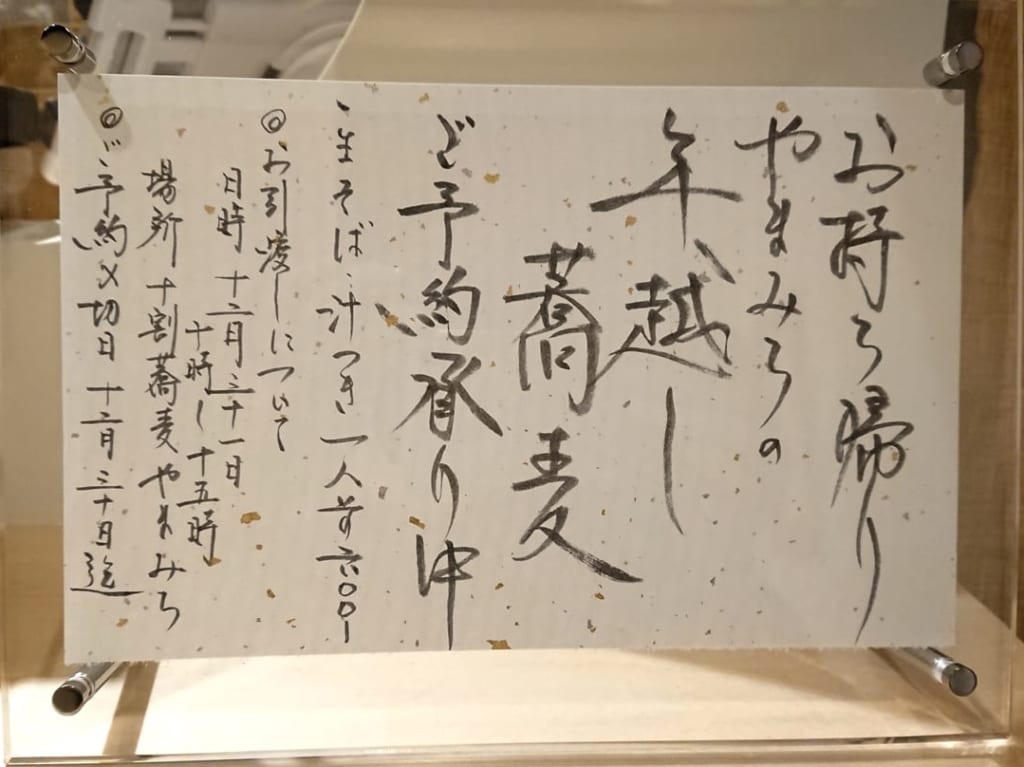 お持ち帰り
やまみちの
年越し
蕎麦
ご予約承り中
・生そば・汁つき一人前六〇〇ー
◎お引渡しについて
日時 十二月三十一日
十時〜十五時
場所 十割蕎麦やまみち
◎ご予約〆切日 十二月三十日迄